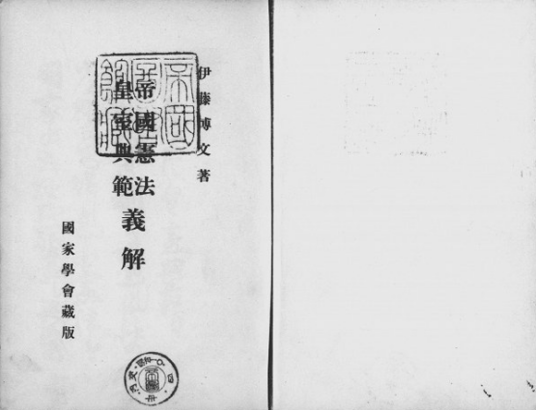 伊藤博文著
帝國憲法
皇室典範
義解
國家學會藏版